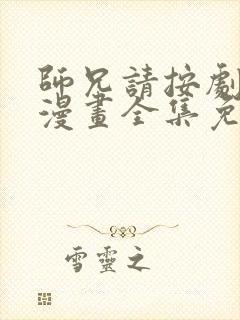 師兄請按劇
漫畫全集免
雪靈之